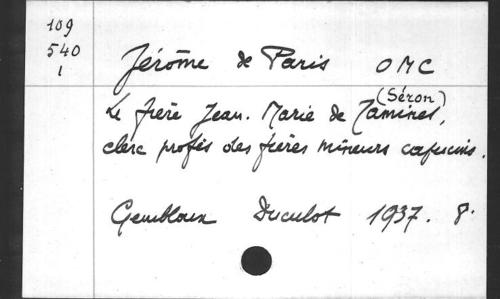 109
540
1
Jérôme de Paris OMC
(Séron)
Le frère Jean-Marie de Tamines,
clerc profès des frères mineurs capucins.
Gembloux Duculot 1937. 8.